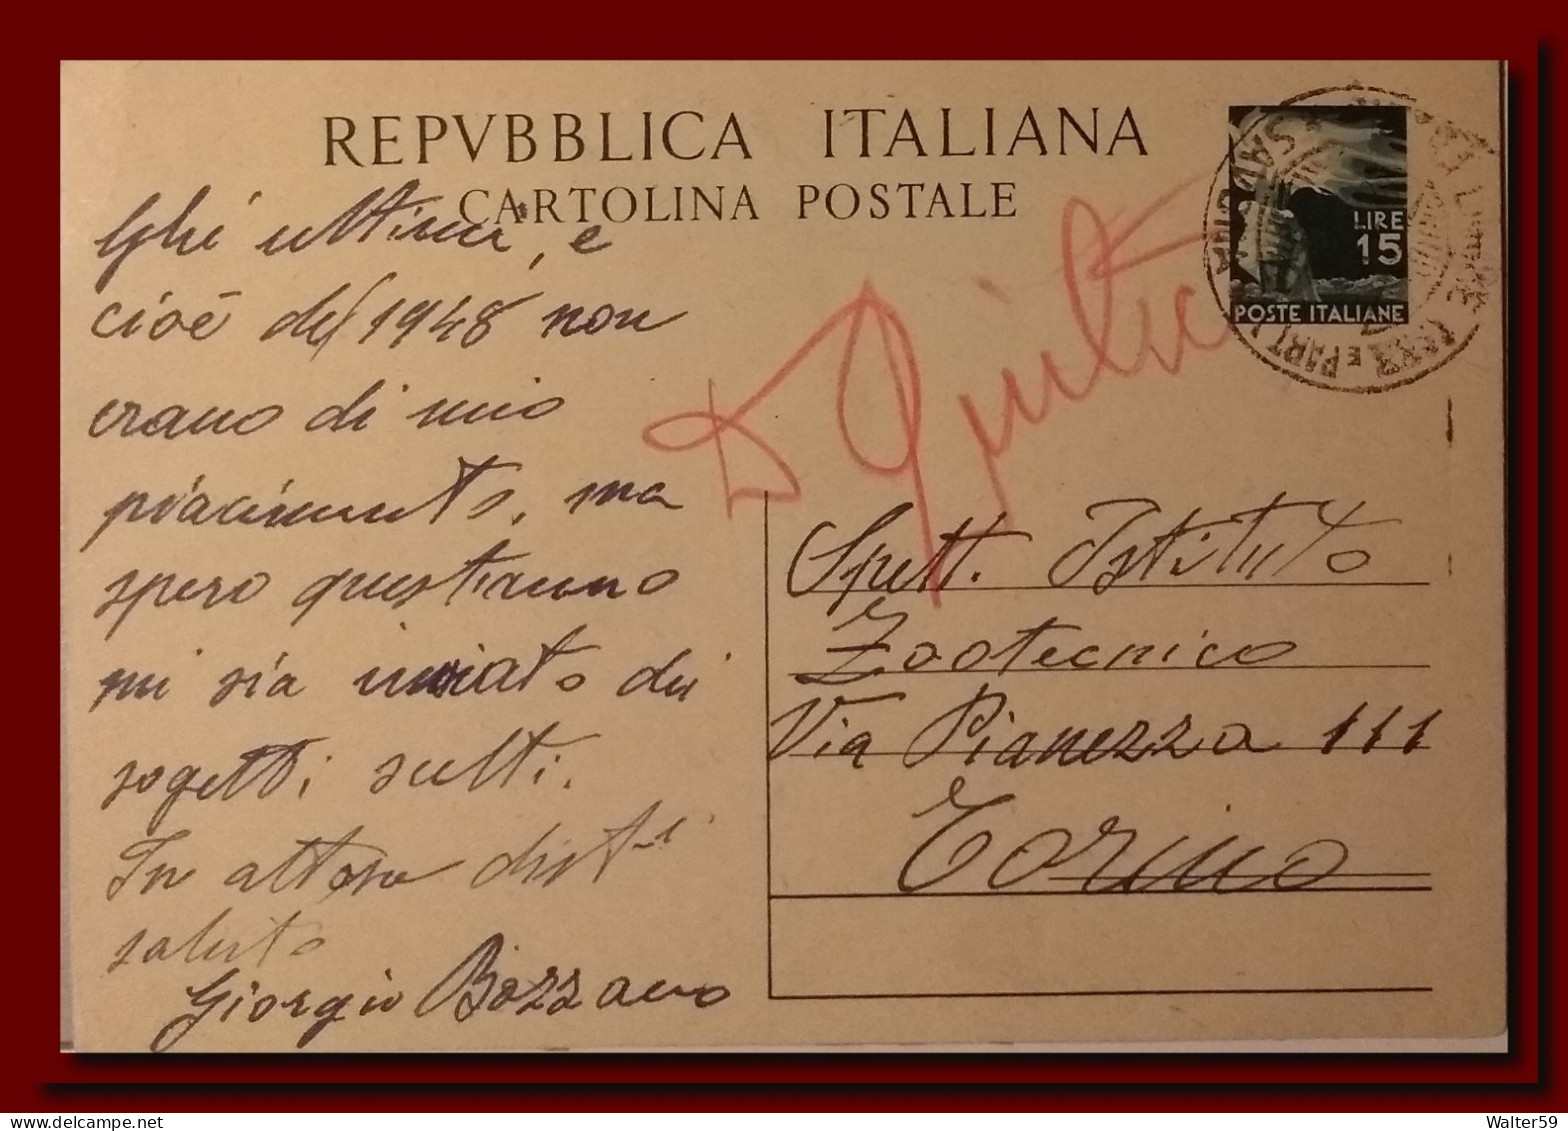 REPVBBLICA ITALIANA
CARTOLINA POSTALE
LIRE
15
POSTE ITALIANE
Ghi ultimi, e
cioè del 1948 non
erano di mio
piacimento, ma
spero quest'anno
mi sia inviato dei
sogetti scelti.
In attesa dist
saluto
Giorgio Bozzano
Spett. Istituto
Zootecnico
Via Pianezza 111
Torino
Walter59